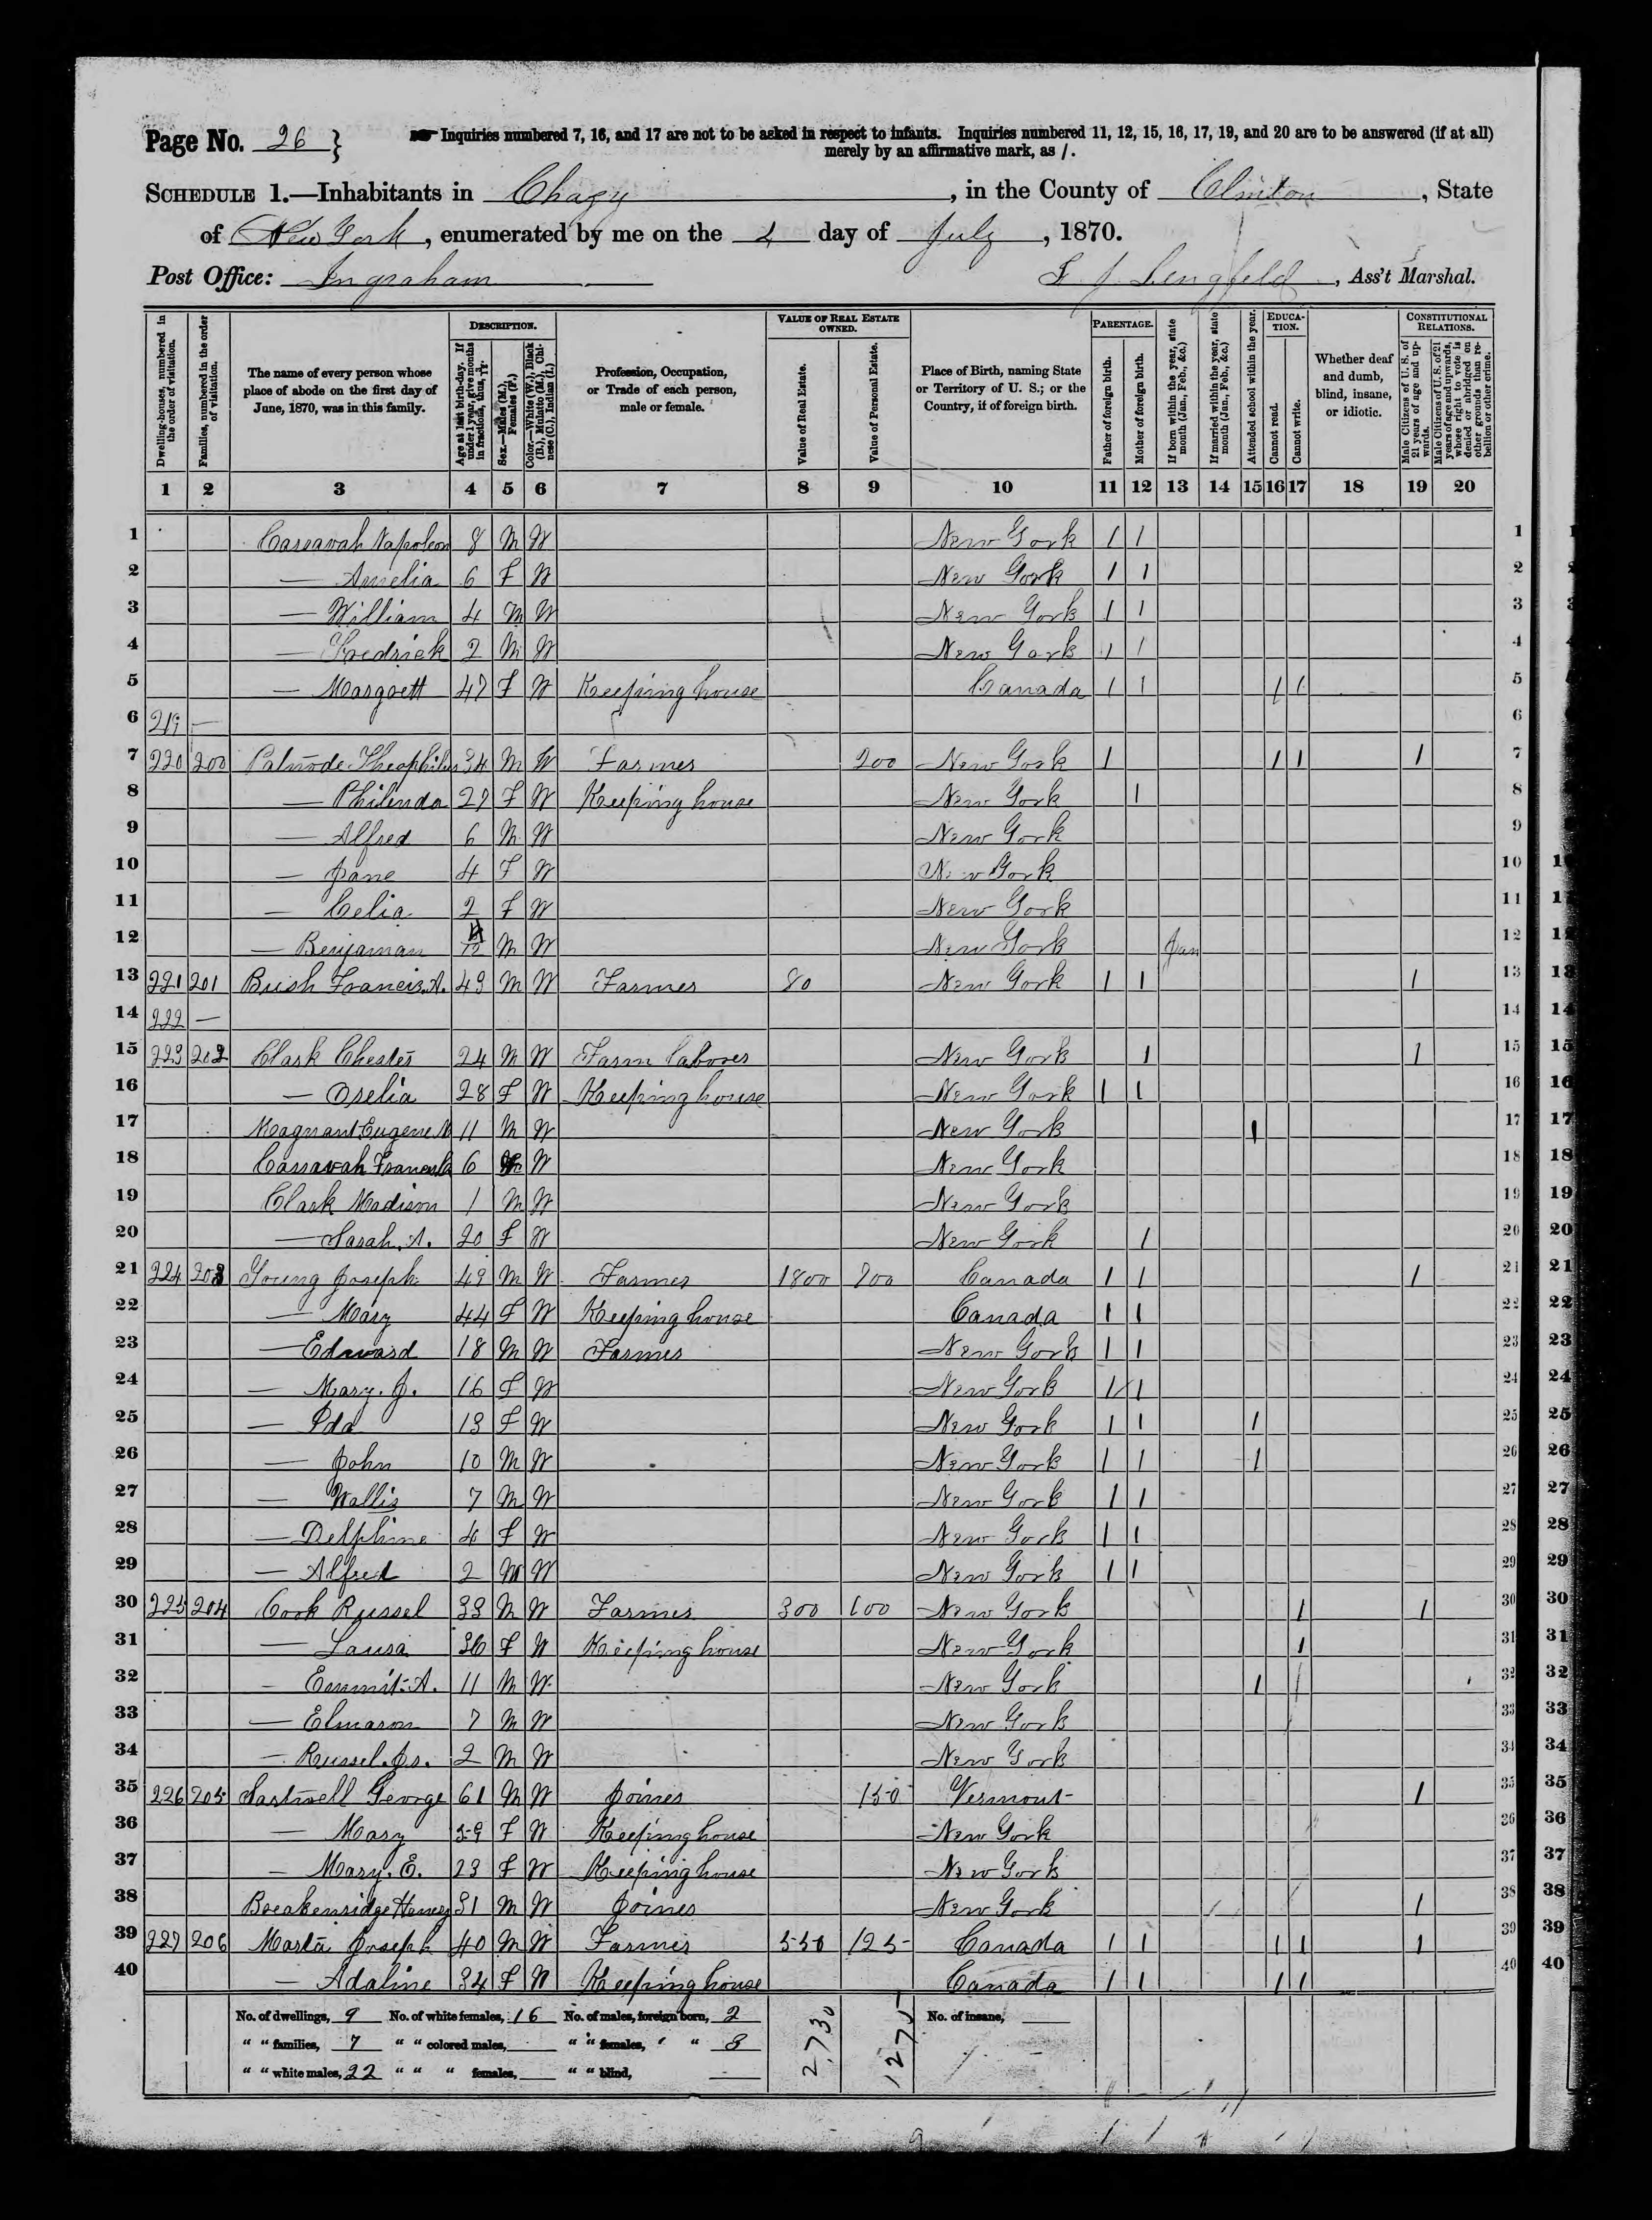 Page No. 26 } Inquiries numbered 7, 16, and 17 are not to be asked in respect to infants. Inquiries numbered 11, 12, 15, 16, 17, 19, and 20 are to be answered (if at all)
merely by an affirmative mark, as /.
SCHEDULE 1.—Inhabitants in Chazy, in the County of Clinton, State
of New York, enumerated by me on the 4 day of July, 1870.
Post Office: Ingraham , Ass't Marshal.
Dwelling-houses, numbered in the order of visitation.
Families, numbered in the order of visitation.
The name of every person whose place of abode on the first day of June, 1870, was in this family.
DESCRIPTION.
Age at last birth-day. If under 1 year, give months in fractions, thus, 3/12.
Sex.—Males (M.), Females (F.)
Color.—White (W.), Black (B.), Mulatto (M.), Chinese (C.), Indian (I.)
Profession, Occupation, or Trade of each person, male or female.
VALUE OF REAL ESTATE OWNED.
Value of Real Estate.
Value of Personal Estate.
Place of Birth, naming State or Territory of U. S.; or the Country, if of foreign birth.
PARENTAGE.
Father of foreign birth.
Mother of foreign birth.
If born within the year, state month (Jan., Feb., &c.)
If married within the year, state month (Jan., Feb., &c.)
Attended school within the year.
EDUCATION.
Cannot read.
Cannot write.
Whether deaf and dumb, blind, insane, or idiotic.
CONSTITUTIONAL RELATIONS.
Male Citizens of U. S. of 21 years of age and upwards.
Male Citizens of U. S. of 21 years of age and upwards, whose right to vote is denied or abridged on other grounds than rebellion or other crime.
1 2 3 4 5 6 7 8 9 10 11 12 13 14 15 16 17 18 19 20
1 Cassavah Napoleon 8 M W New York / / 1
2 — Amelia 6 F W New York / / 2
3 — William 4 M W New York / / 3
4 — Fredrick 2 M W New York / / 4
5 — Margrett 47 F W Keeping house Canada / / / / 5
6 219 — 6
7 220 200 Palmode Theophilus 34 M W Farmer 200 New York / / / / 7
8 — Philinda 29 F W Keeping house New York / 8
9 — Alfred 6 M W New York 9
10 — Jane 4 F W New York 10
11 — Celia 2 F W New York 11
12 — Benjaman /12 M W New York Jan 12
13 221 201 Bush Francis A. 43 M W Farmer 80 New York / / / 13
14 222 — 14
15 223 202 Clark Chester 24 M W Farm laborer New York / / 15
16 — Oselia 28 F W Keeping house New York / / 16
17 Magnant Eugene 11 M W New York / 17
18 Cassavah 6 W New York 18
19 Clark Madison 1 M W New York 19
20 — Sarah A. 20 F W New York / 20
21 224 203 Young Joseph 49 M W Farmer 1800 200 Canada / / / 21
22 — Mary 44 F W Keeping house Canada / / 22
23 — Edward 18 M W Farmer New York / / 23
24 — Mary J. 16 F W New York / / 24
25 — Ida 13 F W New York / / / 25
26 — John 10 M W New York / / / 26
27 — Wallis 7 M W New York / / 27
28 — Delphine 4 F W New York / / 28
29 — Alfred 2 M W New York / / 29
30 225 204 Cook Russel 33 M W Farmer 300 100 New York / / 30
31 — Laura 36 F W Keeping house New York / 31
32 — Emmit A. 11 M W New York / 32
33 — Elmaron 7 M W New York 33
34 — Russel Jr. 2 M W New York 34
35 226 205 Sartwell George 61 M W Joiner 150 Vermont / 35
36 — Mary 59 F W Keeping house New York 36
37 — Mary E. 23 F W Keeping house New York 37
38 Breakenridge Henry 31 M W Joiner New York / 38
39 227 206 Marta Joseph 40 M W Farmer 550 125 Canada / / / / / 39
40 — Adaline 34 F W Keeping house Canada / / / / 40
No. of dwellings, 9 No. of white females, 16 No. of males, foreign born, 2 2730 1275 No. of insane,
" " families, 7 " " colored males, " " females, " " 3
" " white males, 22 " " " females, " " blind,